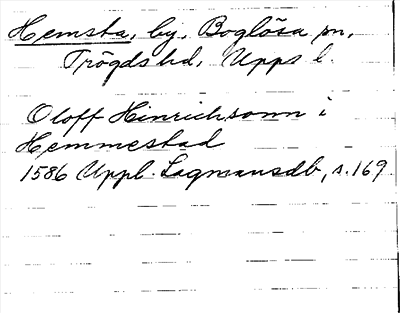 Hemsta, by, Boglösa sn,
Trögds hd, Upps l.
Oloff Hinrichsonn i
Hemmestad
1586 Uppl. Lagmansdb, s. 169